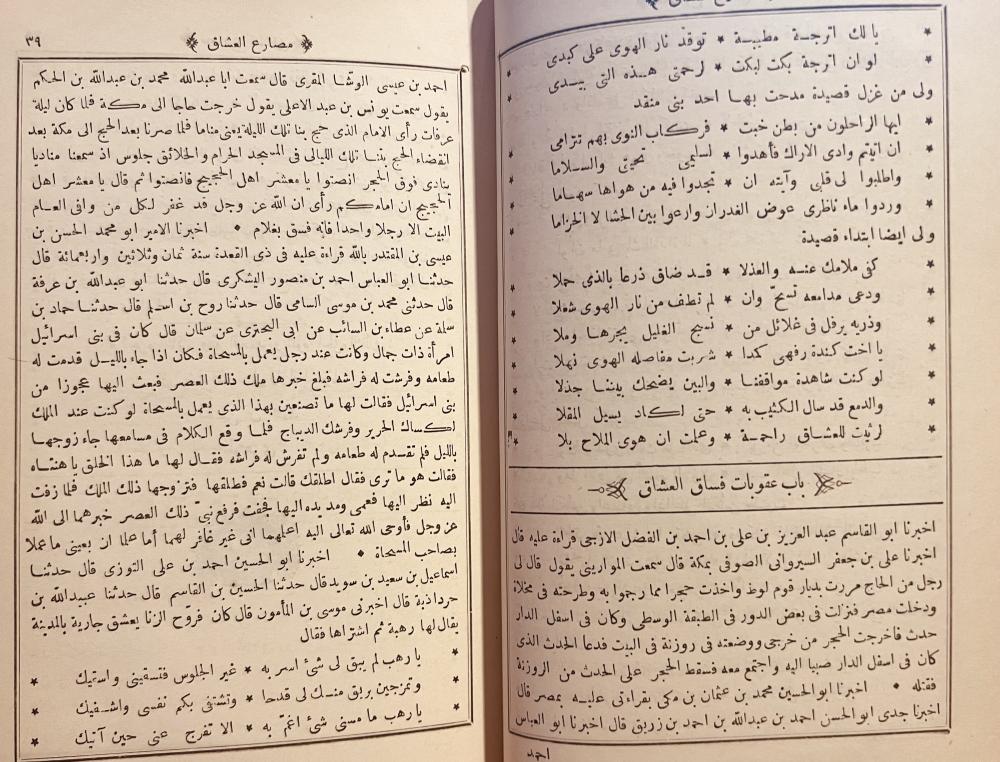 مصارع العشاق
يا لك اترجة مطيبة * توقد نار الهوى على كبدى
لو ان اترجة بكت لبكت * لرحمتى هذه التى بيدى
ولى من غزل قصيدة مدحت بها احد بنى منقد
ايها الراحلون من بطن خبت * فركاب النوى بهم تترامى
ان اتيتم وادى الاراك فأهدوا * لسليمى تحيتى والسلاما
واطلبوا لى قلبى وآيته ان * تجدوا فيه من هواها سهاما
وردوا ماء ناظرى عوض الغدران وارعوا بين الحشا لا الخزاما
ولى ايضا ابتداء قصيدة
كفى ملامك عنه والعذلا * قد ضاق ذرعا بالذى حملا
ودعى مدامعه تسح وان * لم تطف من نار الهوى شعلا
وذريه يرفل فى غلائل من * نسج الغليل يجرها وملا
يا اخت كندة رفهى كمدا * شربت مفاصله الهوى نهلا
لو كنت شاهدة مواقفنا * والبين يضحك بيننا جذلا
والدمع قد سال الكثيب به * حتى لكاد يسيل المقلا
لرثيت للعشاق راحمة * وعلمت ان هوى الملاح بلا
باب عقوبات فساق العشاق
اخبرنا ابو القاسم عبد العزيز بن على بن احمد بن الفضل الازجى قراءة عليه قال
اخبرنا على بن جعفر السيروانى الصوفى بمكة قال سمعت الموازينى يقول قال لى
رجل من الحاج مررت بديار قوم لوط واخذت حجرا مما رجموا به وطرحته فى مخلاة
ودخلت مصر فنزلت فى بعض الدور فى الطبقة الوسطى وكان فى اسفل الدار
حدث فاخرجت الحجر من خرجى ووضعته فى روزنة فى البيت فدعا الحدث الذى
كان فى اسفل الدار صبيا اليه واجتمع معه فسقط الحجر على الحدث من الروزنة
فقتله * اخبرنا ابو الحسين محمد بن عثمان بن مكى بقراءتى عليه بمصر قال
اخبرنا جدى ابو الحسن احمد بن عبدالله بن احمد بن زريق قال اخبرنا ابو العباس
احمد
مصارع العشاق ٣٩
احمد بن عيسى الوشا المقرى قال سمعت ابا عبدالله محمد بن عبدالله بن الحكم
يقول سمعت يونس بن عبد الاعلى يقول خرجت حاجا الى مكة فلما كان ليلة
عرفات رأى الامام الذى حج بنا تلك الليلة يعنى مناما فلما صرنا بعد الحج الى مكة بعد
انقضاء الحج بتنا تلك الليالى فى المسجد الحرام والخلائق جلوس اذ سمعنا مناديا
ينادى فوق الحجر انصتوا يا معشر اهل الحجيج فانصتوا ثم قال يا معشر اهل
الحجيج ان امامكم رأى ان الله عز وجل قد غفر لكل من وافى العام
البيت الا رجلا واحدا فانه فسق بغلام * اخبرنا الامير ابو محمد الحسن بن
عيسى بن المقتدر بالله قراءة عليه فى ذى القعدة سنة ثمان وثلاثين واربعمائة قال
حدثنا ابو العباس احمد بن منصور اليشكرى قال حدثنا ابو عبدالله بن عرفة
قال حدثنى محمد بن موسى السامى قال حدثنا روح بن اسلم قال حدثنا حماد بن
سلمة عن عطاء بن السائب عن ابى البحترى عن سلمان قال كان فى بنى اسرائيل
امرأة ذات جمال وكانت عند رجل يعمل بالمسحاة فكان اذا جاء بالليل قدمت له
طعامه وفرشت له فراشه فبلغ خبرها ملك ذلك العصر فبعث اليها عجوزا من
بنى اسرائيل فقالت لها ما تصنعين بهذا الذى يعمل بالمسحاة لو كنت عند الملك
لكساك الحرير وفرشك الديباج فلما وقع الكلام فى مسامعها جاء زوجها
بالليل فلم تقدم له طعامه ولم تفرش له فراشه فقال لها ما هذا الخلق يا هنتاه
فقالت هو ما ترى فقال اطلقك قالت نعم فطلقها فتزوجها ذلك الملك فلما زفت
اليه نظر اليها فعمى ومد يده اليها فجفت فرفع نبى ذلك العصر خبرهما الى الله
عز وجل فأوحى الله تعالى اليه اعلمهما انى غير غافر لهما أما علما ان بعينى ما عملا
بصاحب المسحاة * اخبرنا ابو الحسين احمد بن على التوزى قال حدثنا
اسماعيل بن سعيد بن سويد قال حدثنا الحسين بن القاسم قال حدثنا عبيدالله بن
خرداذبة قال اخبرنى موسى بن المأمون قال كان فروح الزنا يعشق جارية بالمدينة
يقال لها رهبة ثم اشتراها فقال
يا رهب لم يبق لى شئ اسر به * غير الجلوس فتسقينى واسقيك
وتمزجين بريق منك لى قدحا * وتشتفى بكم نفسى واشفيك
يا رهب ما مسنى شئ اغم به * الا تفرج عنى حين آتيك